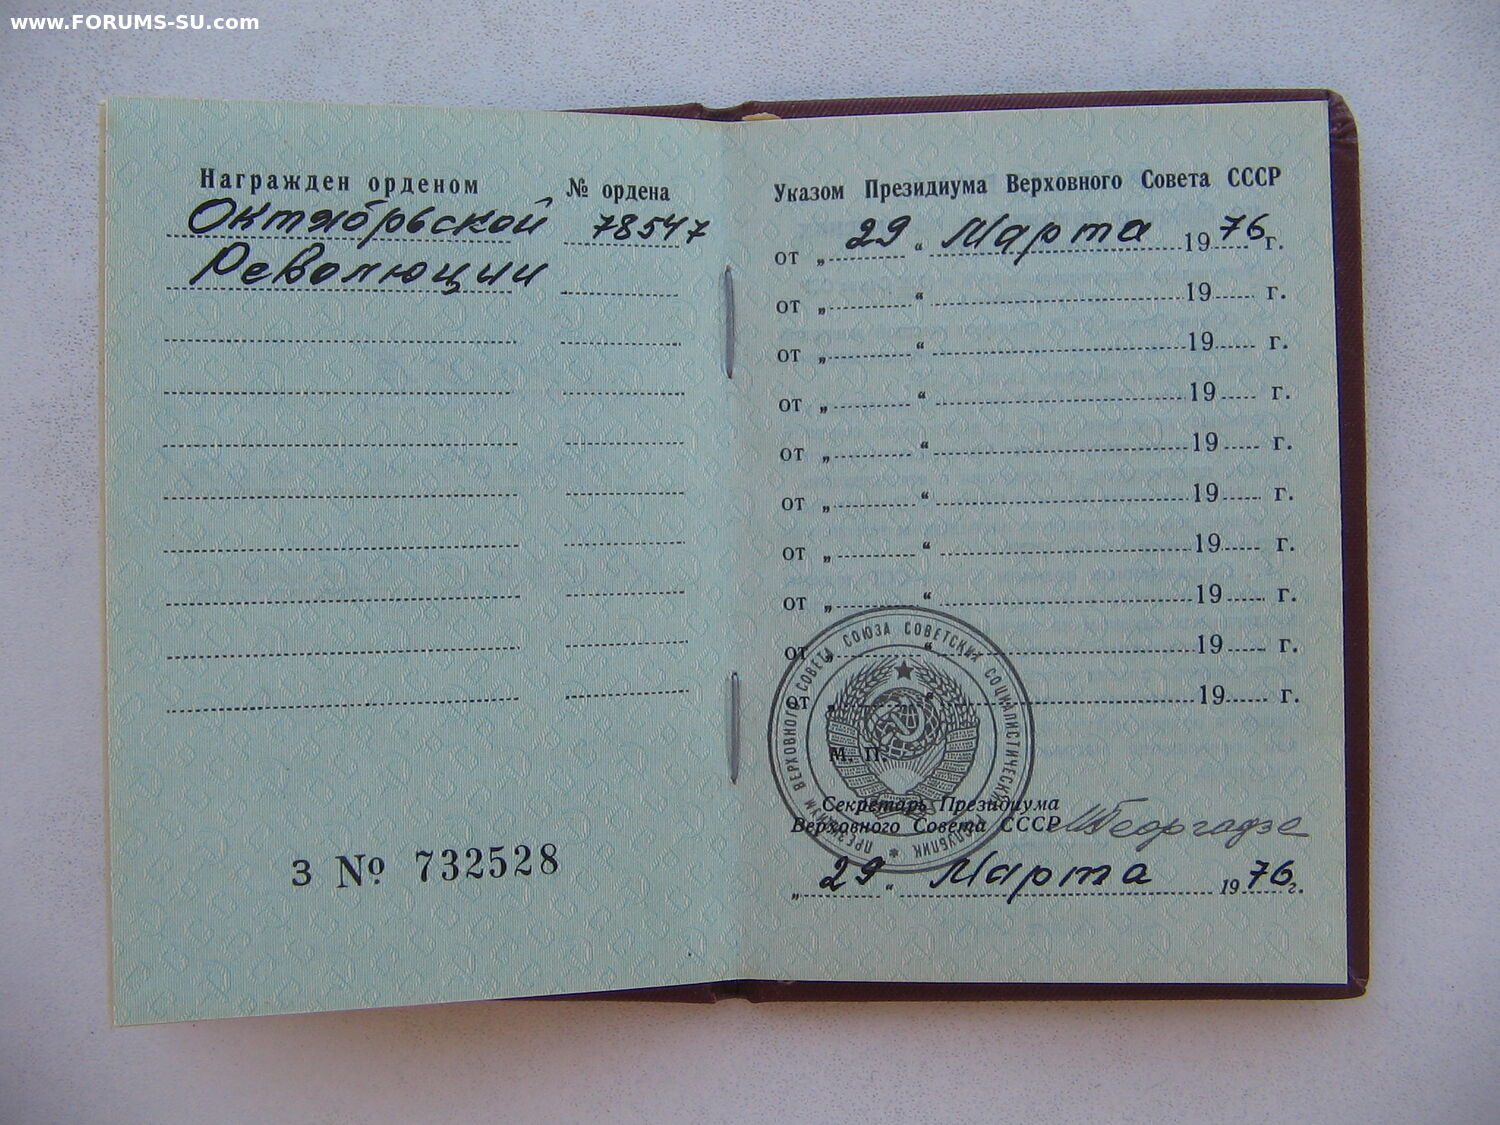 www.FORUMS-SU.com
Награжден орденом № ордена
Октябрьской 78547
Революции
З № 732528
Указом Президиума Верховного Совета СССР
от „ 29 “ Марта 1976 г.
от „ “ 19 г.
от „ “ 19 г.
от „ “ 19 г.
от „ “ 19 г.
от „ “ 19 г.
от „ “ 19 г.
от „ “ 19 г.
от „ “ 19 г.
от „ “ 19 г.
ПРЕЗИДИУМ ВЕРХОВНОГО СОВЕТА СОЮЗА СОВЕТСКИХ СОЦИАЛИСТИЧЕСКИХ РЕСПУБЛИК
М. П.
Секретарь Президиума
Верховного Совета СССР МГеоргадзе
„ 29 “ Марта 1976 г.